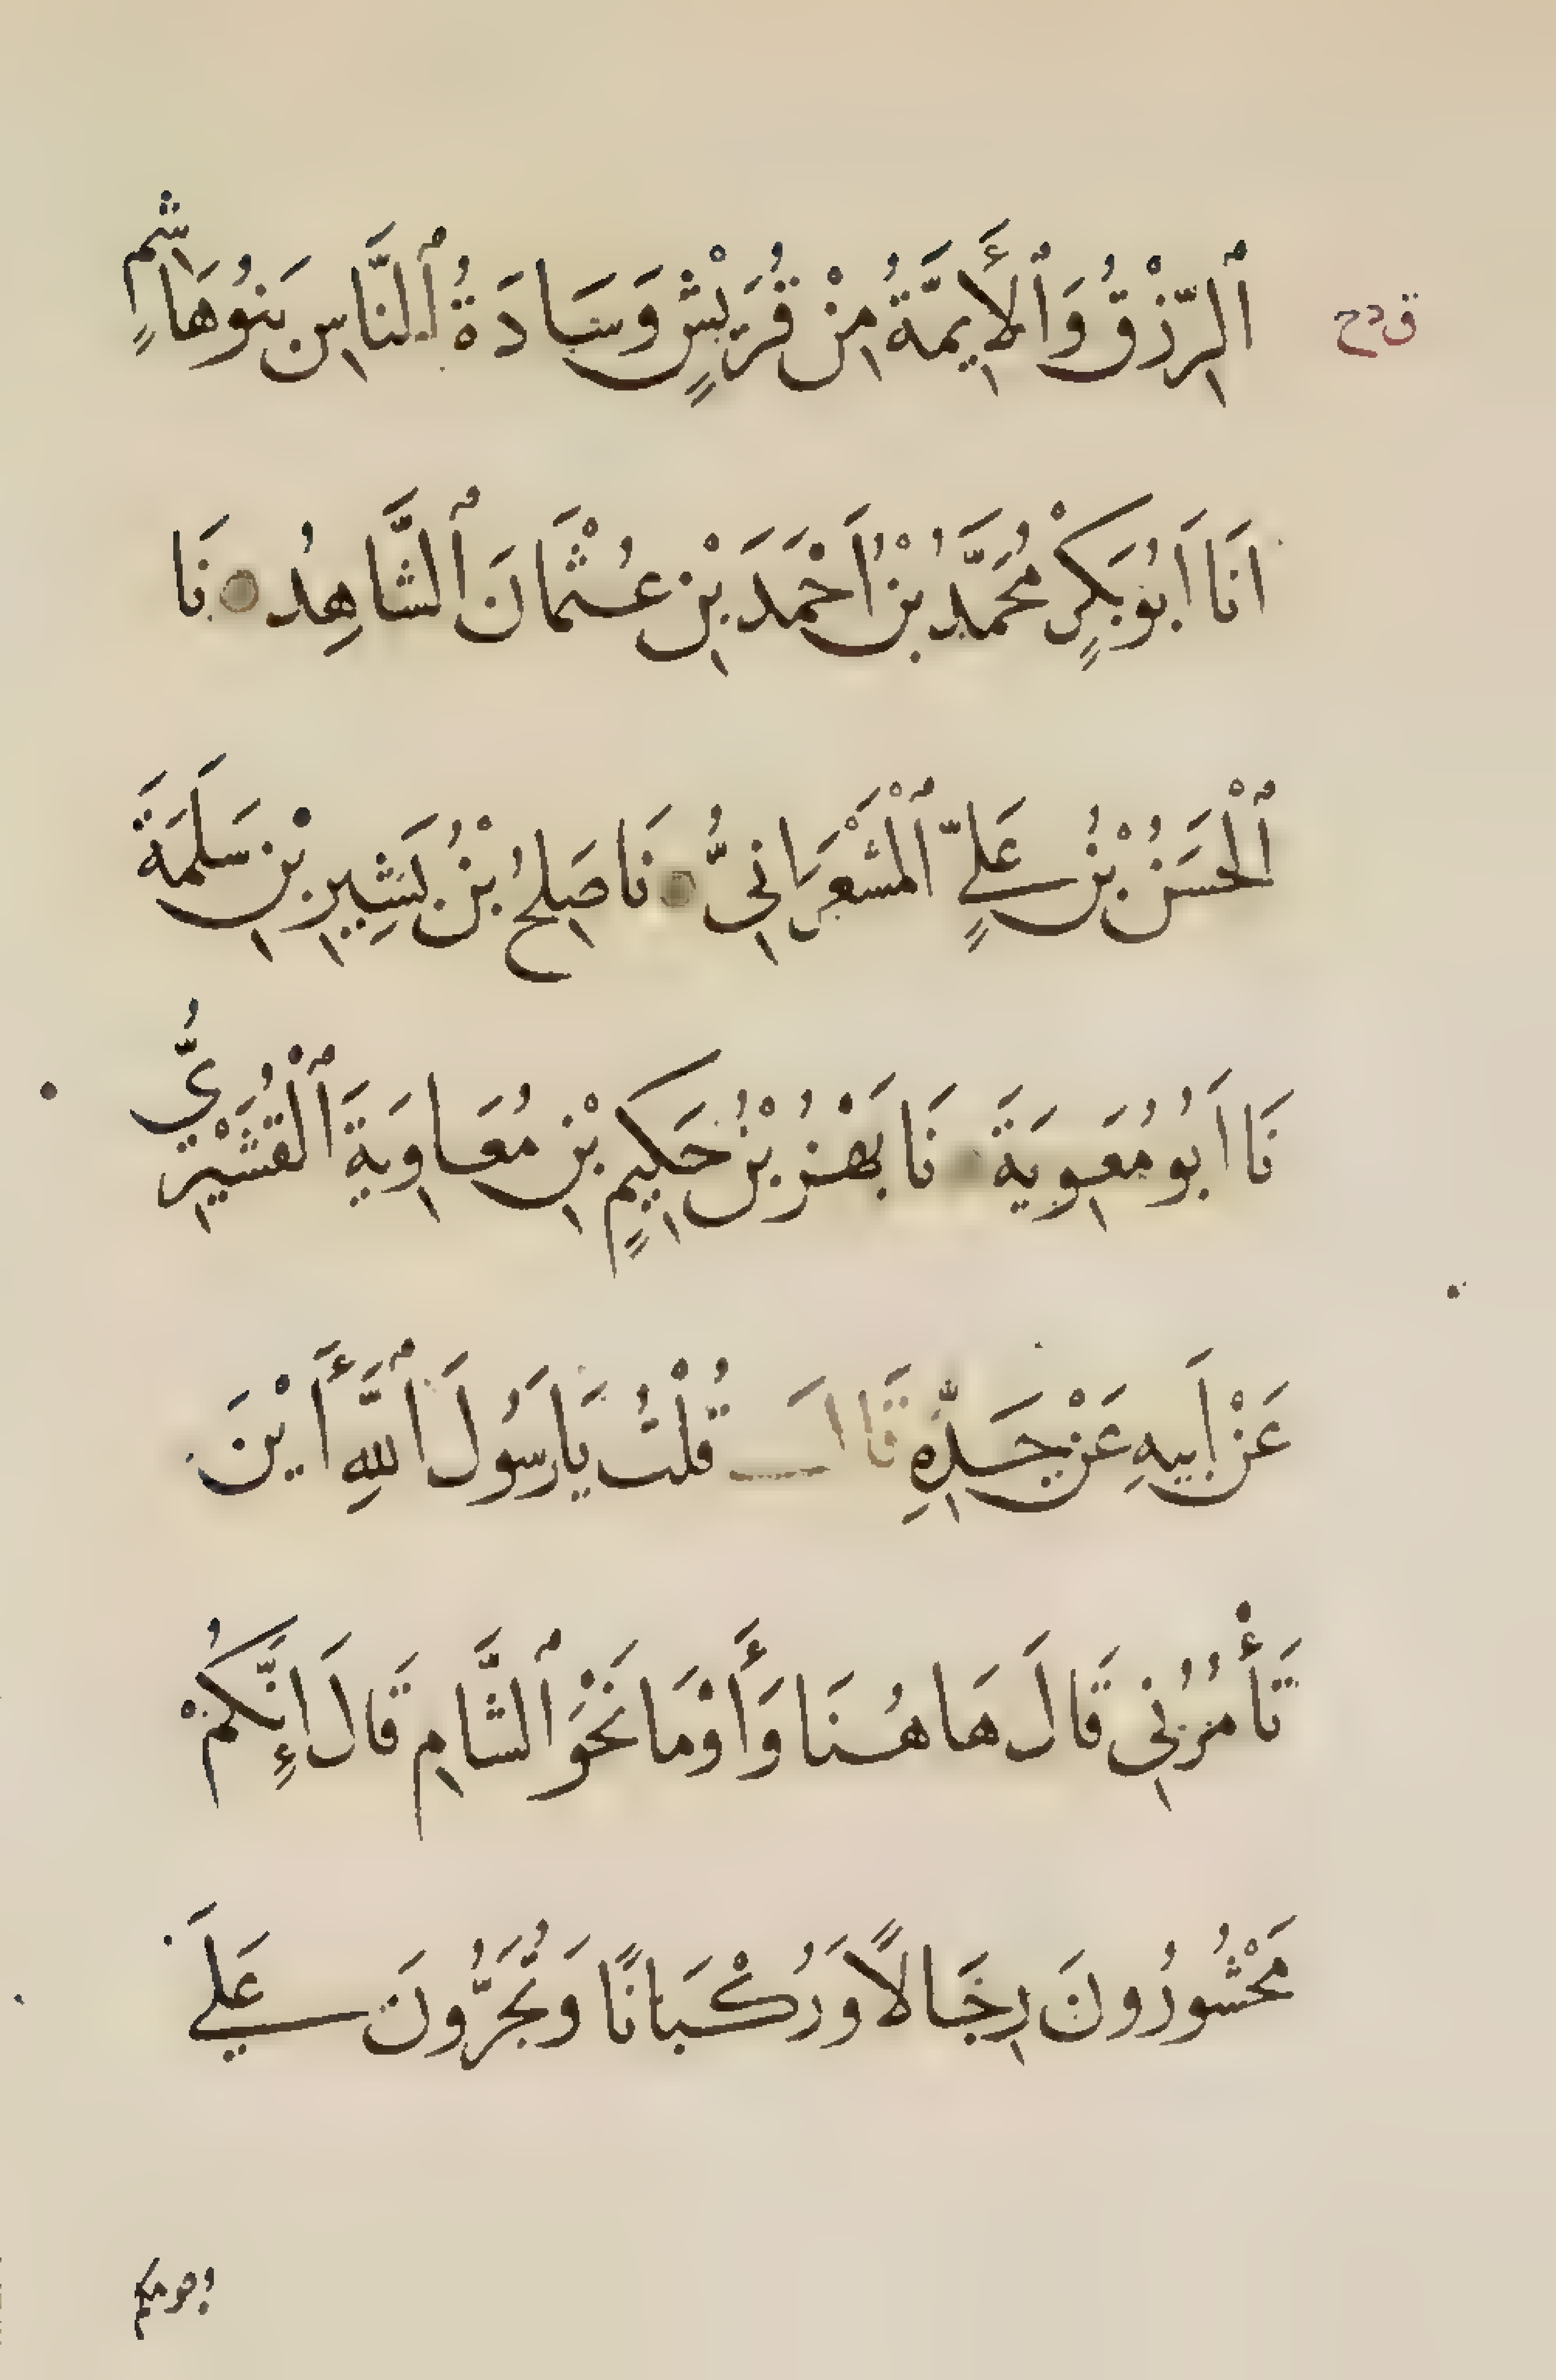 ٱلرِّزْقُ وَٱلْأَيِمَّةُ مِنْ قُرَيْشٍ وَسَادَةُ ٱلنَّاسِ بَنُوهَاشِمٍ
اَنَا اَبُوبَكْرٍ مُحَمَّدُ بْنُ اَحْمَدَ بْنِ عُثْمَانَ ٱلشَّاهِدُ نَا
ٱلْحَسَنُ بْنُ عَلِيٍّ ٱلْمَشْعَرَانِيُّ نَا صَلِحُ بْنُ بَشِيرِ بْنِ سَلَمَةَ
نَا اَبُو مُعَوِيَةَ نَا بَهْزُ بْنُ حَكِيمٍ بْنِ مُعَاوِيَةَ ٱلْقُشَيْرِيُّ
عَنْ اَبِيهِ عَنْ جَدِّهِ قَالَ قُلْتُ يَا رَسُولَ ٱللَّهِ أَيْنَ
تَأْمُرُنِي قَالَ هَاهُنَا وَأَوْمَا نَحْوَ ٱلشَّامِ قَالَ إِنَّكُمْ
مَحْشُورُونَ رِجَالًا وَرُكْبَانًا وَتُجَرُّونَ عَلَي
وجوهكم